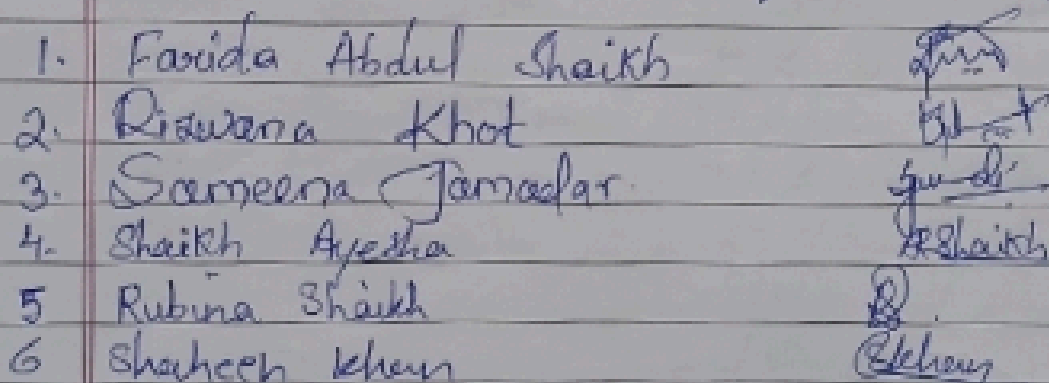 1. Farida Abdul Shaikh
2. Rizwana Khot
3. Sameena Jamadar.
4. Shaikh Ayesha AShaikh
5 Rubina Shaikh
6 Shaheen Khan SKhan